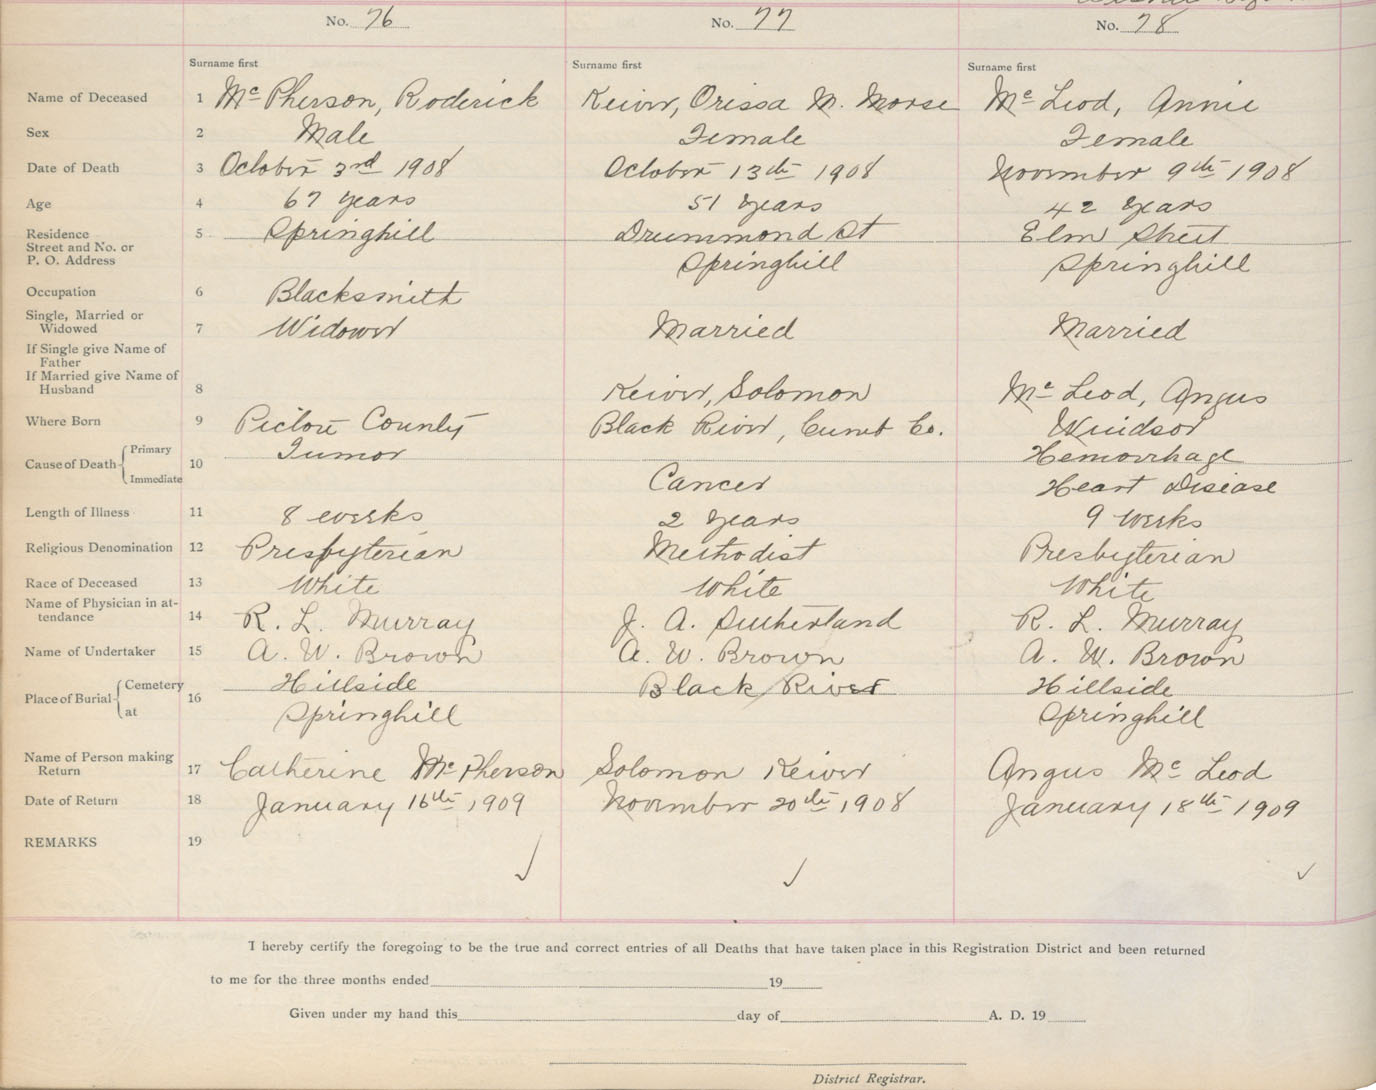 No. 76 No. 77 No. 78
Surname first Surname first Surname first
Name of Deceased 1 McPherson, Roderick Keiver, Orissa M. Morse McLeod, Annie
Sex 2 Male Female Female
Date of Death 3 October 3rd 1908 October 13th 1908 November 9th 1908
Age 4 67 years 51 years 42 years
Residence 5 Springhill Drummond St Elm Street
Street and No. or
P. O. Address Springhill Springhill
Occupation 6 Blacksmith
Single, Married or
Widowed 7 Widower Married Married
If Single give Name of
Father
If Married give Name of
Husband 8 Keiver, Solomon McLeod, Angus
Where Born 9 Pictou County Black River, Cumb Co. Windsor
Cause of Death Primary 10 Tumor Hemorrhage
Immediate Cancer Heart Disease
Length of Illness 11 8 weeks 2 years 9 weeks
Religious Denomination 12 Presbyterian Methodist Presbyterian
Race of Deceased 13 White White White
Name of Physician in at-
tendance 14 R. L. Murray J. A. Sutherland R. L. Murray
Name of Undertaker 15 A. W. Brown A. W. Brown A. W. Brown
Place of Burial Cemetery 16 Hillside Black River Hillside
at Springhill Springhill
Name of Person making
Return 17 Catherine McPherson Solomon Keiver Angus McLeod
Date of Return 18 January 16th 1909 November 20th 1908 January 18th 1909
REMARKS 19
I hereby certify the foregoing to be the true and correct entries of all Deaths that have taken place in this Registration District and been returned
to me for the three months ended 19
Given under my hand this day of A. D. 19
District Registrar.